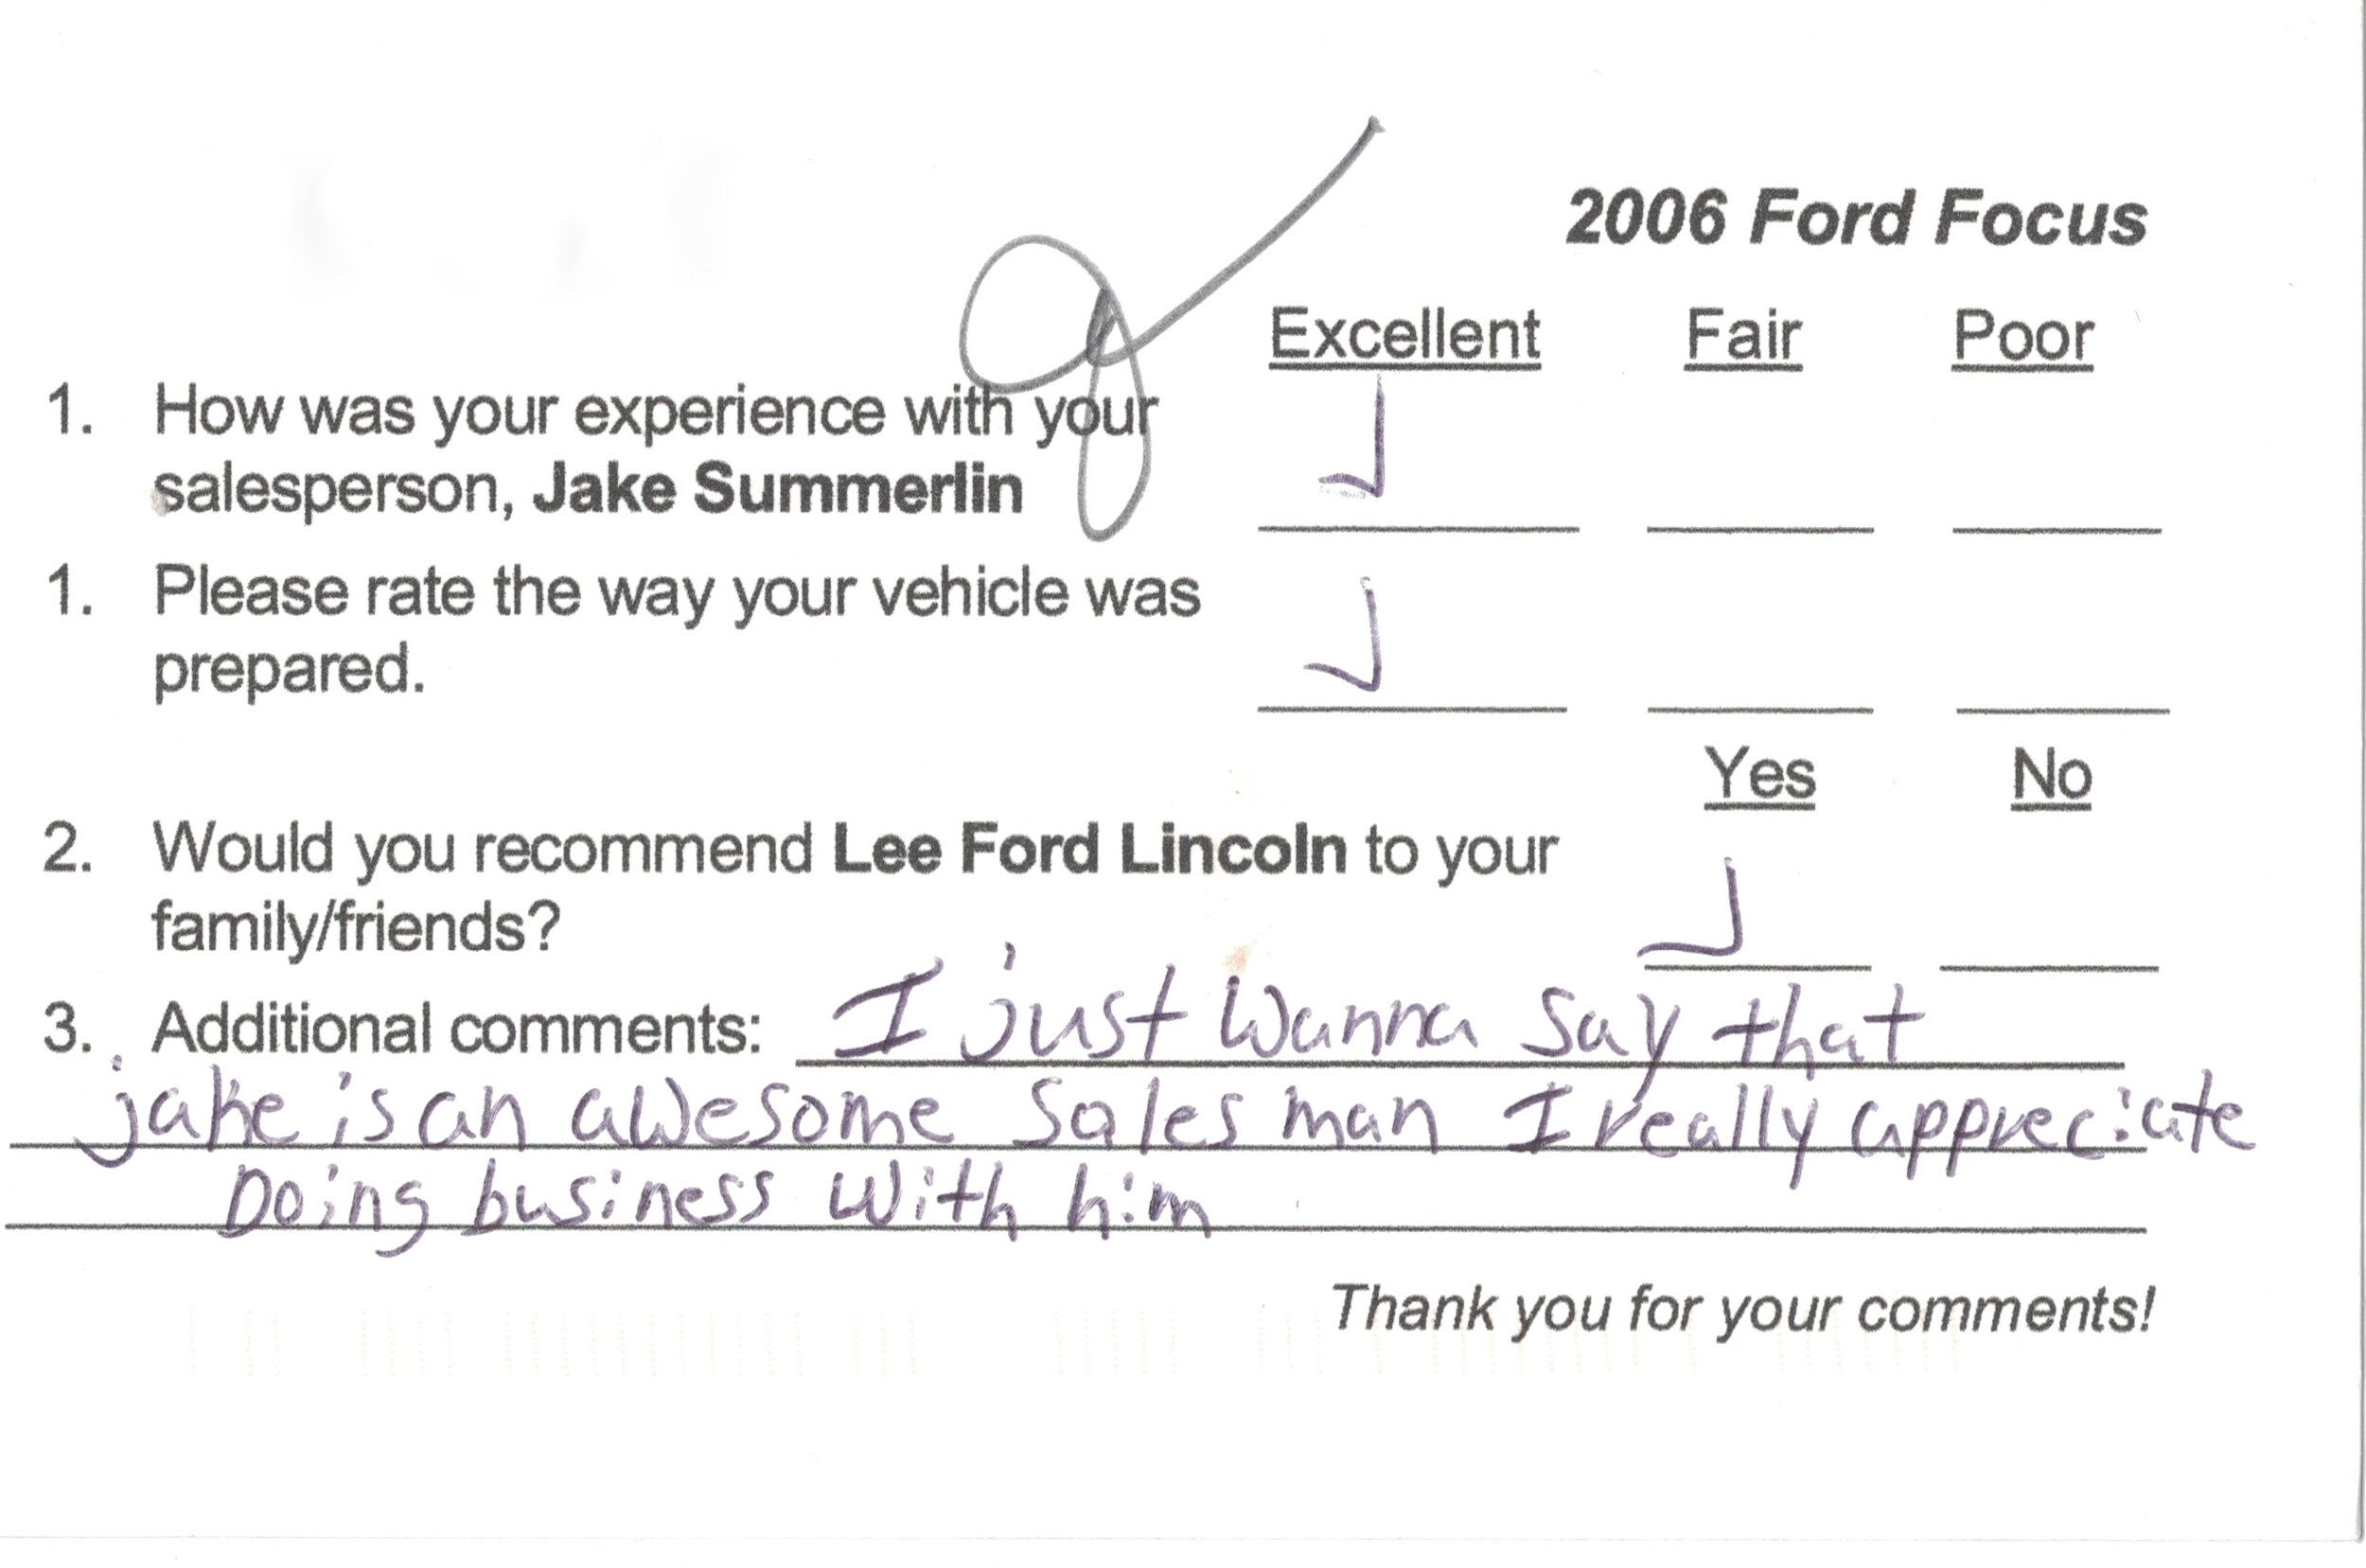 2006 Ford Focus
Excellent Fair Poor
1. How was your experience with your
salesperson, Jake Summerlin
1. Please rate the way your vehicle was
prepared.
Yes No
2. Would you recommend Lee Ford Lincoln to your
family/friends?
3. Additional comments: I just Wanna Say that
jake is an awesome Sales man I really appreciate
Doing business with him
Thank you for your comments!